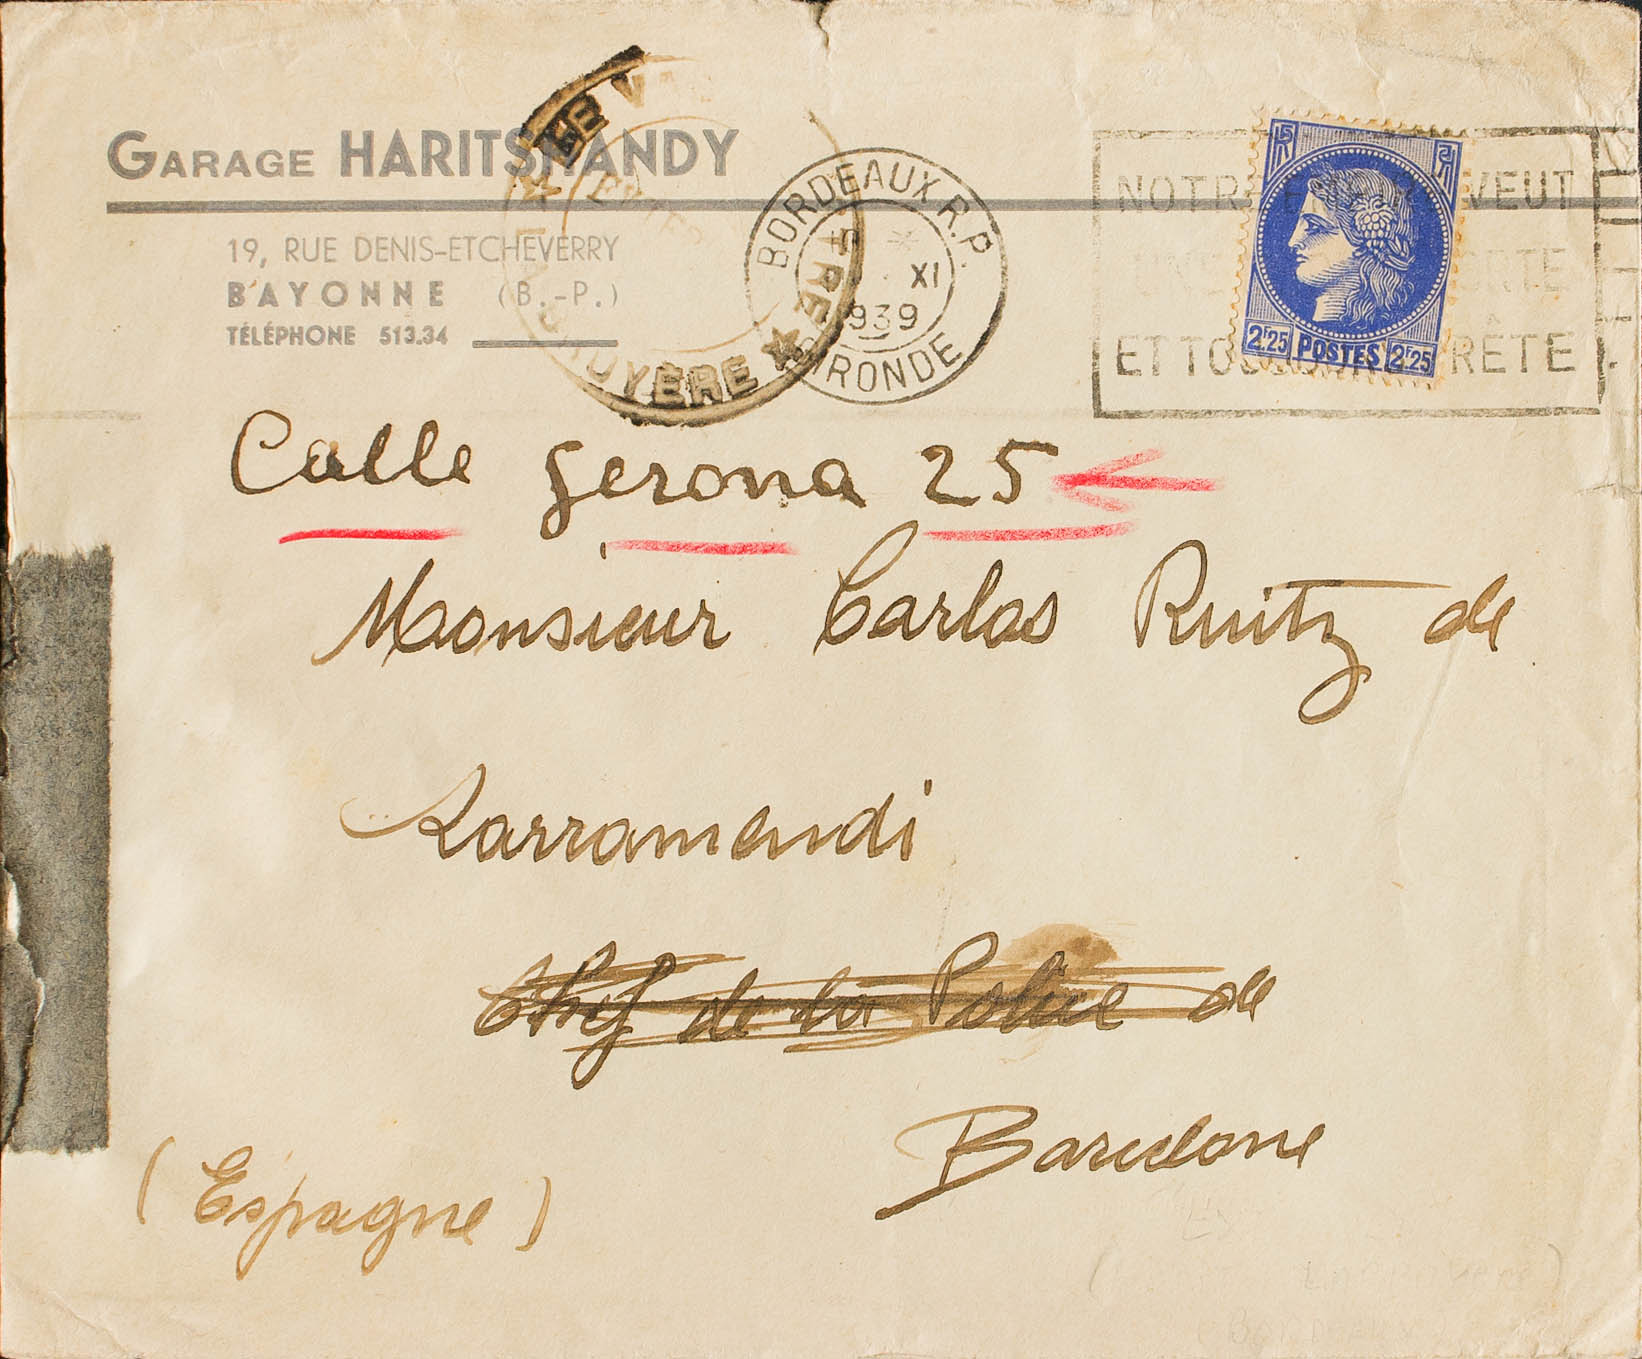 GARAGE HARITSHANDY
19, RUE DENIS-ETCHEVERRY
BAYONNE (B.-P.)
TÉLÉPHONE 513.34
BORDEAUX R.P.
XI
1939
GIRONDE
VEUT
ET RÊTE
2F25 POSTES 2F25
Calle Gerona 25
Monsieur Carlos Ruitz de
Larramendi
Chef de la Police de
Barcelone
(Espagne)